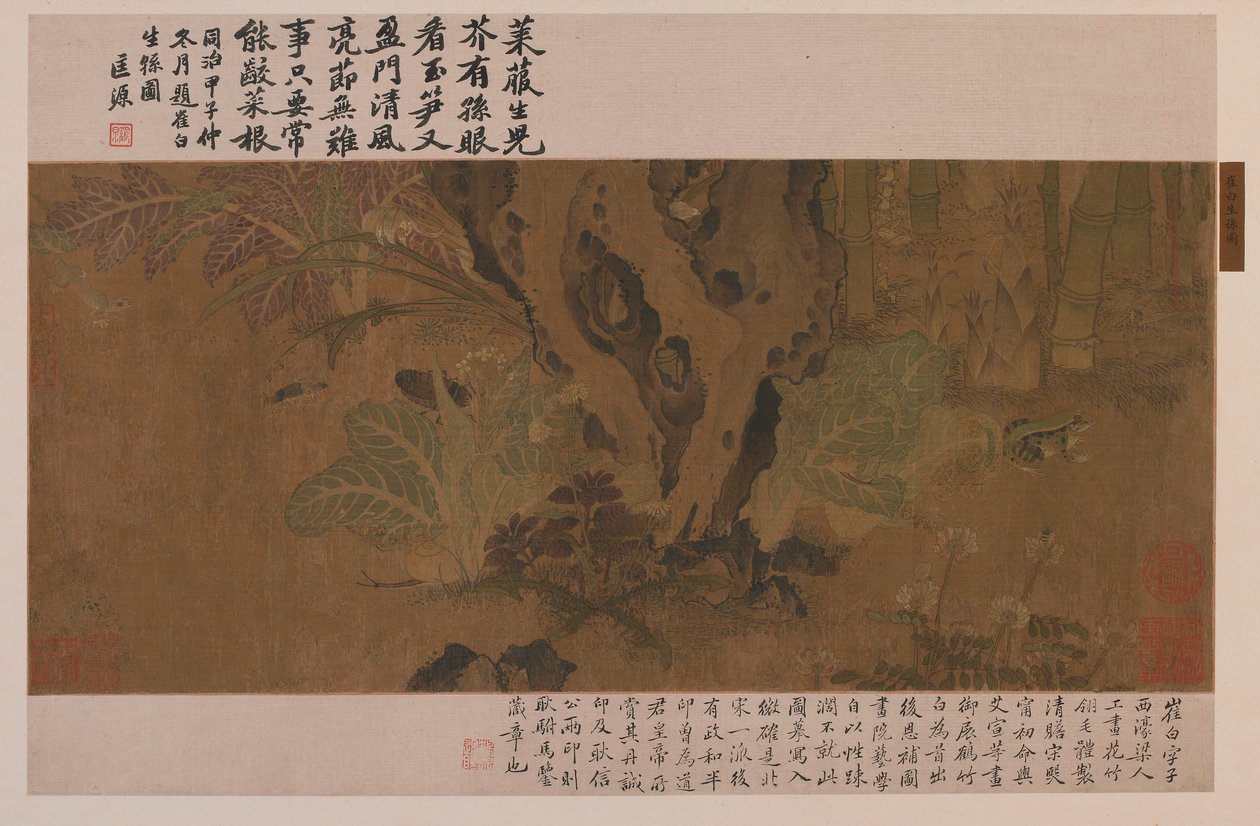 萊菔生兒
芥有孫眼
看玉笋又
盈門清風
亮節無難
事只要常
能齩菜根
同治甲子仲
冬月題崔白
生孫圖
匡源
崔白生孫圖
崔白字子
西濠梁人
工畫花竹
翎毛體製
清贍宋熙
甯初命與
艾宣等畫
御扆鶴竹
白為首出
後恩補圖
畫院藝學
自以性踈
濶不就此
圖摹寫入
微確是北
宋一派後
有政和半
印曾為道
君皇帝所
賞其丹誠
印及耿信
公兩印則
耿駙馬鑒
藏章也